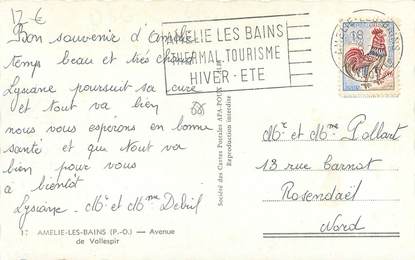 17 €
Bon souvenir d'Amélie
temps beau et très chaud
Lysiane poursuit sa cure
et tout va bien
nous vous espérons en bonne
santé et que tout va
bien pour vous
à bientôt
Lysiane - Mr et Mme Debril
AMÉLIE LES BAINS
THERMAL.TOURISME
HIVER - ETE
18
Société des Cartes Postales APA-POUX
Reproduction interdite
Mr et Mme Pollart
13 rue Carnot
Rosendaël
Nord
AMELIE-LES-BAINS (P.-O.) — Avenue
de Vallespir